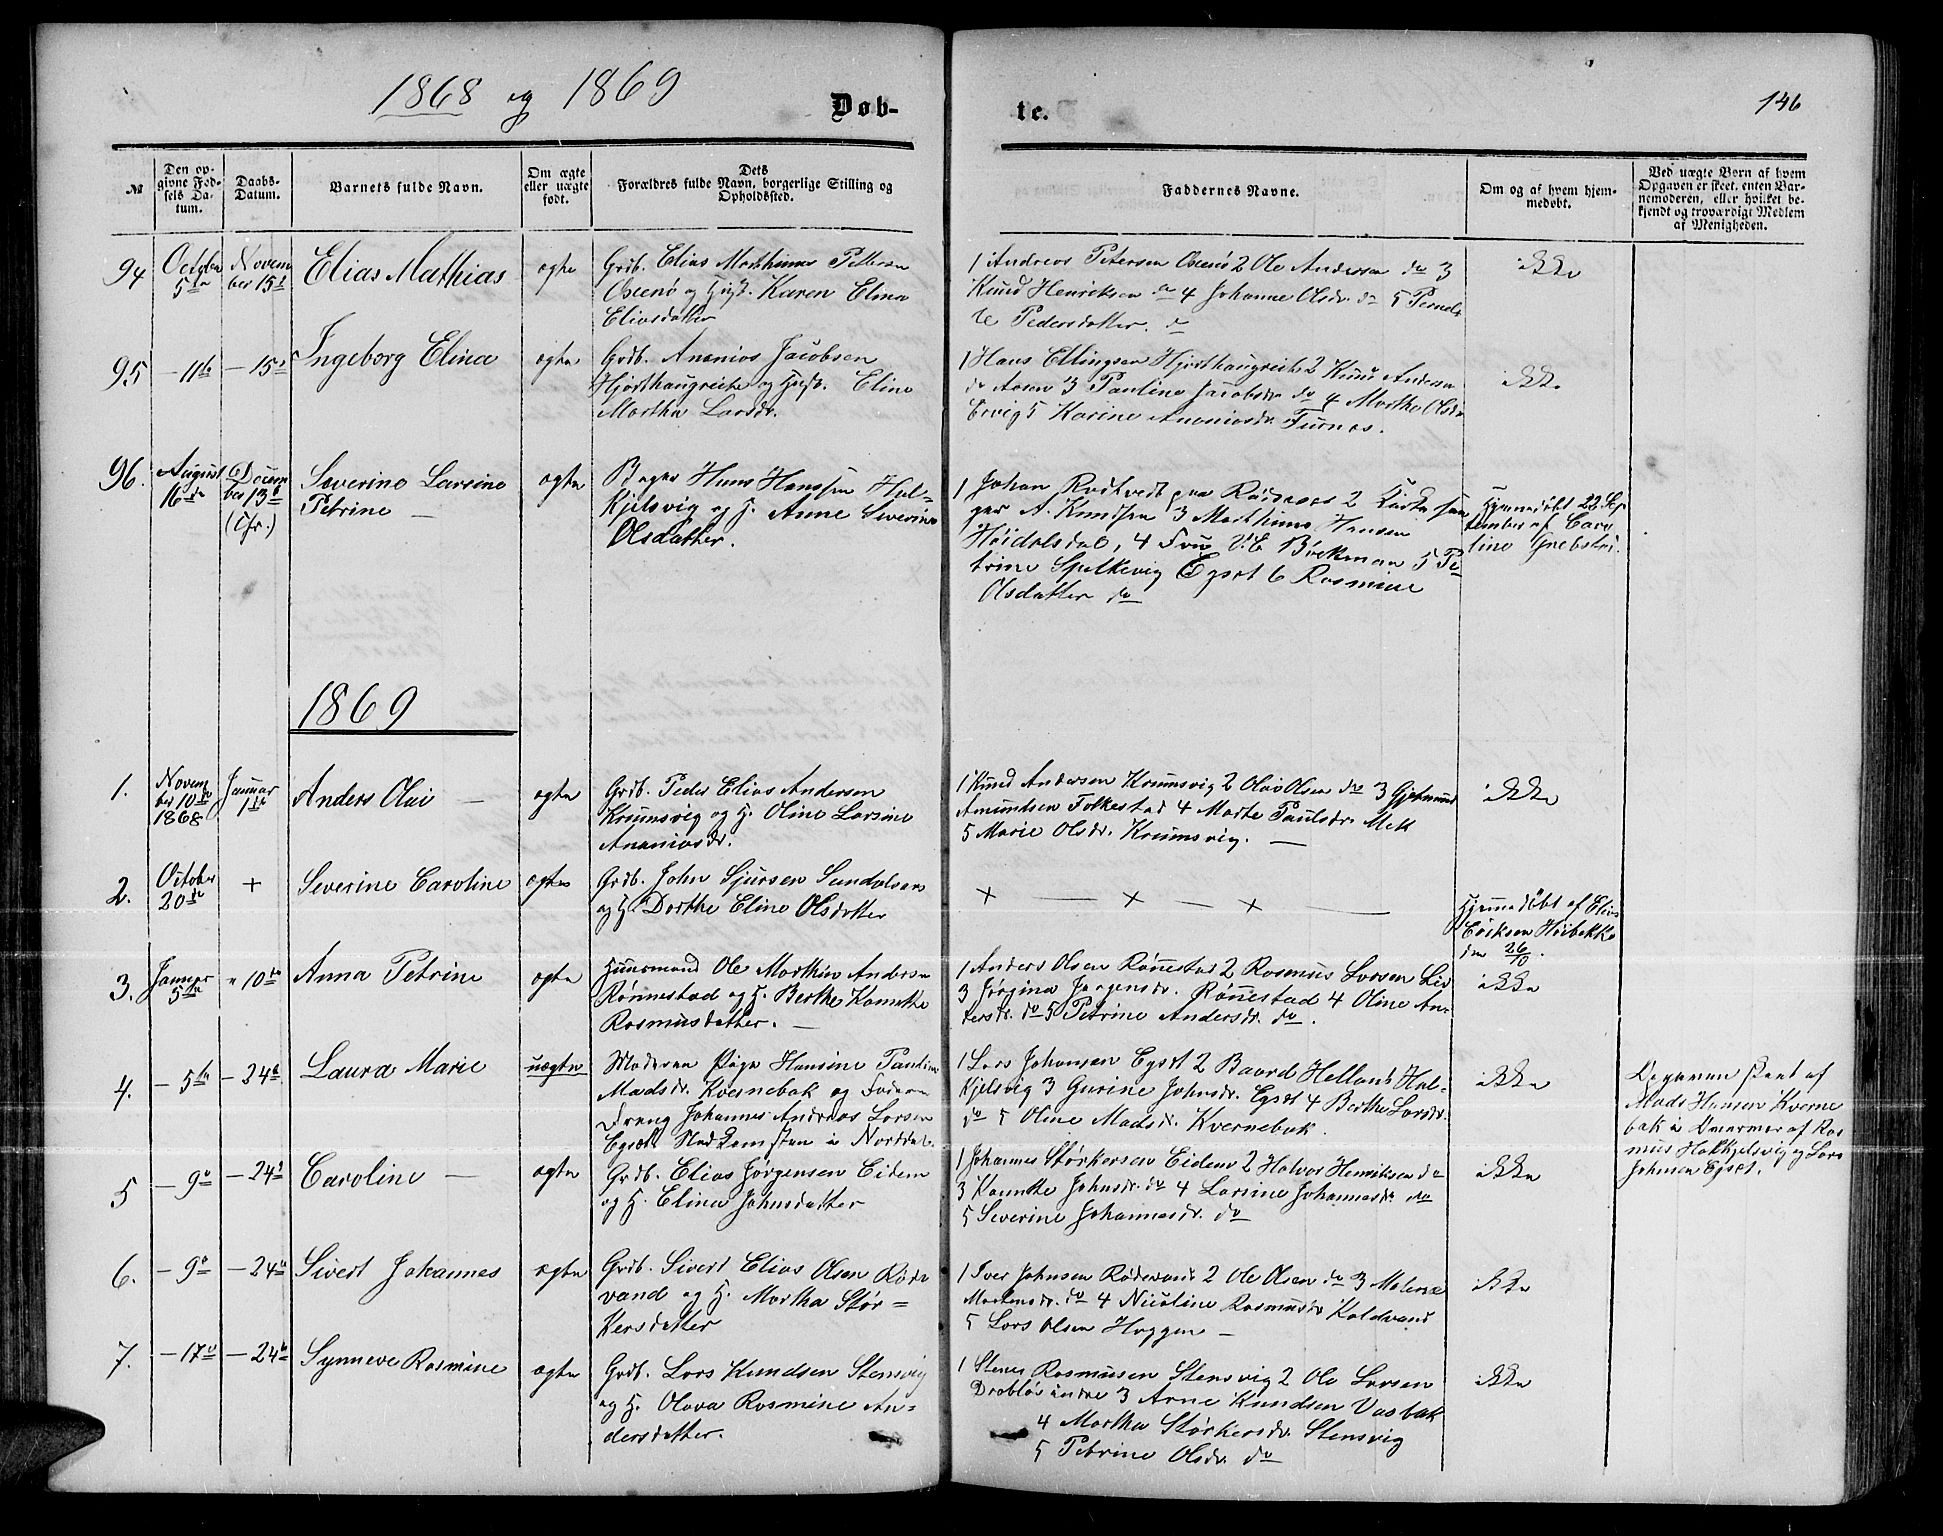 1868 og 1869
Døb-
te.
146
№
Den op-
givne Fød-
sels Da-
tum.
Daabs-
Datum.
Barnets fulde Navn.
Om ægte
eller uægte
født.
Dets
Forældres fulde Navn, borgerlige Stilling og
Opholdssted.
Faddernes Navne.
Om og af hvem hjem-
medøbt.
Ved uægte Børn af hvem
Opgaven er skeet, enten Bar-
nemoderen, eller hvilket be-
kjendt og troværdigt Medlem
af Menigheden.
94
October
5te
Novem
ber 15d
Elias Mathias
ægte
Grdb. Elias Marthinus Petersen
Oxenø og Hust. Karen Elina
Eliasdatter
1 Andreas Petersen Oxenø 2 Ole Andersen do 3
Knud Henriksen do 4 Johanne Olsdr. do 5 Pernel-
le Pedersdatter. do
ikke
95
- 11te
- 15d
Ingeborg Elina
ægte
Grdb. Ananias Jacobsen
Hjorthaugreite og Hust. Eline
Martha Larsdr.
1 Hans Ellingsen Hjorthaugreite 2 Knud Andersen
do Aasen 3 Pauline Jacobsdr. do 4 Marthe Olsdr
Ervig 5 Karine Ananiasdr. Furnes.
ikke
96.
August
16de
Decem
ber 13d
(Chr.)
Severine Larsine
Petrine —
ægte
Bager Hans Hanssen Hal-
kjelsvig og H. Anne Severine
Olsdatter.
1 Johan Rodtvedt paa Raasnæs 2 Kirkesan
ger A. Knudsen 3 Marthinus Hansen
Høidalsdal, 4 Fru V. E. Bøckman 5 Pe
trine Spilkevig Egset 6 Rasmine
Olsdatter do
Hjemmedøbt 22 Sep
tember af Caro
line Grebstri.
1869
1.
Novem
ber 10de
1868
Januar
1te
Anders Olai —
ægte
Grdb. Peder Elias Andersen
Krumsvig og H. Oline Larsine
Ananiasdr.
1 Knud Andersen Krumsvig 2 Olai Olsen do 3 Gjetmund
Amundsen Folkestad 4 Marte Paulsdr. Mek
5 Marie Olsdr. Krumsvig. —
ikke
2.
October
20de
+
Severine Caroline
ægte
Grdb. John Sjursen Sundalsør
og H. Dorthe Eline Olsdatter
+ — + — + —
Hjemmedøbt af Elias
Eriksen Høibakke
den 26/10.
3.
Januar
5te
" 10de
Anna Petrine
ægte
Huusmand Ole Marthin Andersen
Rønnestad og H. Berthe Kanutte
Rasmusdatter. —
1 Anders Olsen Rønestad 2 Rasmus Larsen Lid
3 Jørgine Jørgensdr. Rønestad 4 Oline An-
dersdr. do 5 Petrine Andersdr. do.
ikke
4.
- 5te
- 24de
Laura Marie
uægte
Moderen Pige Hansine Pauline
Madsdr. Kvernebak og Faderen
Dreng Johannes Andreas Larsen
Egset
i Norddal.
1 Lars Johansen Egset 2 Baard Helland Hal-
kjelsvig 3 Gurine Johnsdr. Egset 4 Berthe Larsdr.
do 5 Oline Madsdr. Kvernebak.
ikke
Opgaven skeet af
Mads Hansen Kverne
bak i Nærvær af Ras
mus Halkjelsvig og Lars
Johnsen Egset.
5
- 9de
- 24de
Caroline —
ægte
Grdb. Elias Jørgensen Eidem
og H. Elina Johnsdatter
1 Johannes Størkersen Eidem 2 Halvor Henriksen do
3 Kanutte Johnsdr. do 4 Larsine Johannesdr. do
5 Severine Johannesdr. do
ikke
6.
- 9de
- 24de
Sivert Johannes
ægte
Grdb. Sivert Elias Olsen Røde
vand og H. Martha Stør-
kersdatter
1 Iver Johnsen Rødevand 2 Ole Olsen do 3 Malene
Martensdr. do 4 Nicoline Rasmusdr. Koldevand
5 Lars Olsen Haggen —
ikke
7.
- 17de
- 24de
Synneve Rasmine
ægte
Grdb. Lars Knudsen Stensvig
og H. Olava Rasmine An-
dersdatter.
1 Stener Rasmusen Stensvig 2 Ole Larsen
Drabløs indre 3 Arne Knudsen Vasbak
4 Martha Størkersdr. Stensvig
5 Petrine Olsdr. do
ikke